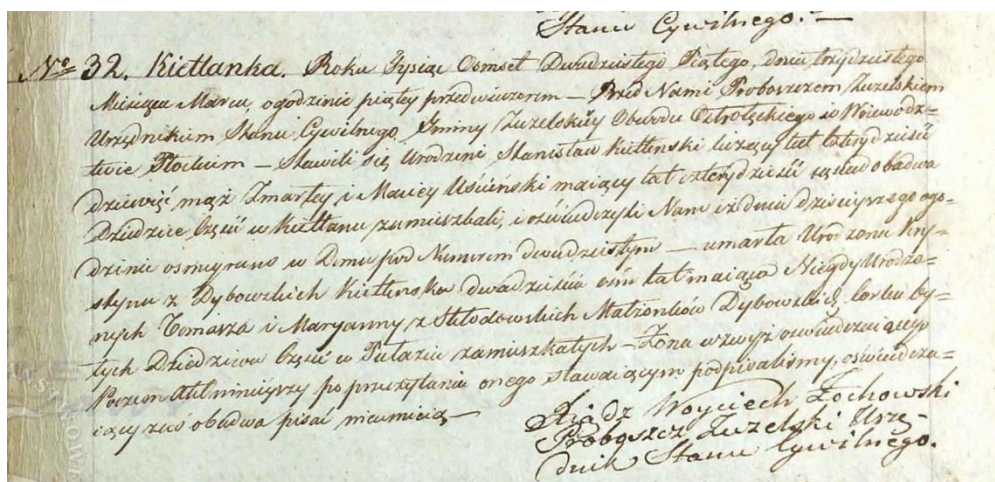 Stanu Cywilnego. —
No 32. Kietlanka. Roku Tysiąc Osmset Dwudziestego Piątego, dnia trzydziestego
Miesiąca Marca, ogodzinie piątey przed wieczorem — Przed Nami Proboszczem Zuzelskiem
Urzędnikiem Stanu Cywilnego Gminy Zuzelskiey Obwodu Ostrołęckiego w Wojewódz-
twie Płockiem — Stawili się Urodzeni Stanisław Kietlinski liczący lat czterydzieści
dziewięć mąż Zmarłey i Maciey Uściński maiący lat czterydzieści sąsiad obadwa
Dziedzice Części w Kietlance zamieszkali, i oświadczyli Nam iż dnia dzisieyszego ogo-
dzinie osmey rano w Domu pod Numerem dwudziestym — umarła Urodzona Kry-
styna z Dybowskich Kietlinska dwadzieścia ośm lat maiąca Niegdy Urodzo-
nych Tomasza i Maryanny z Skłodowskich Małżonków Dybowskich, Corka by-
łych Dziedziców Części w Pułaziu zamieszkałych — Żona wzwyż oświadczaiącego
Poczem Akt ninieyszy po przeczytaniu onego stawaiącym podpisaliśmy, oświadcza-
iący zaś obadwa pisać nieumieią —
Xiądz Woyciech Żochowski
Proboszcz Zuzelski Urzę-
dnik Stanu Cywilnego.